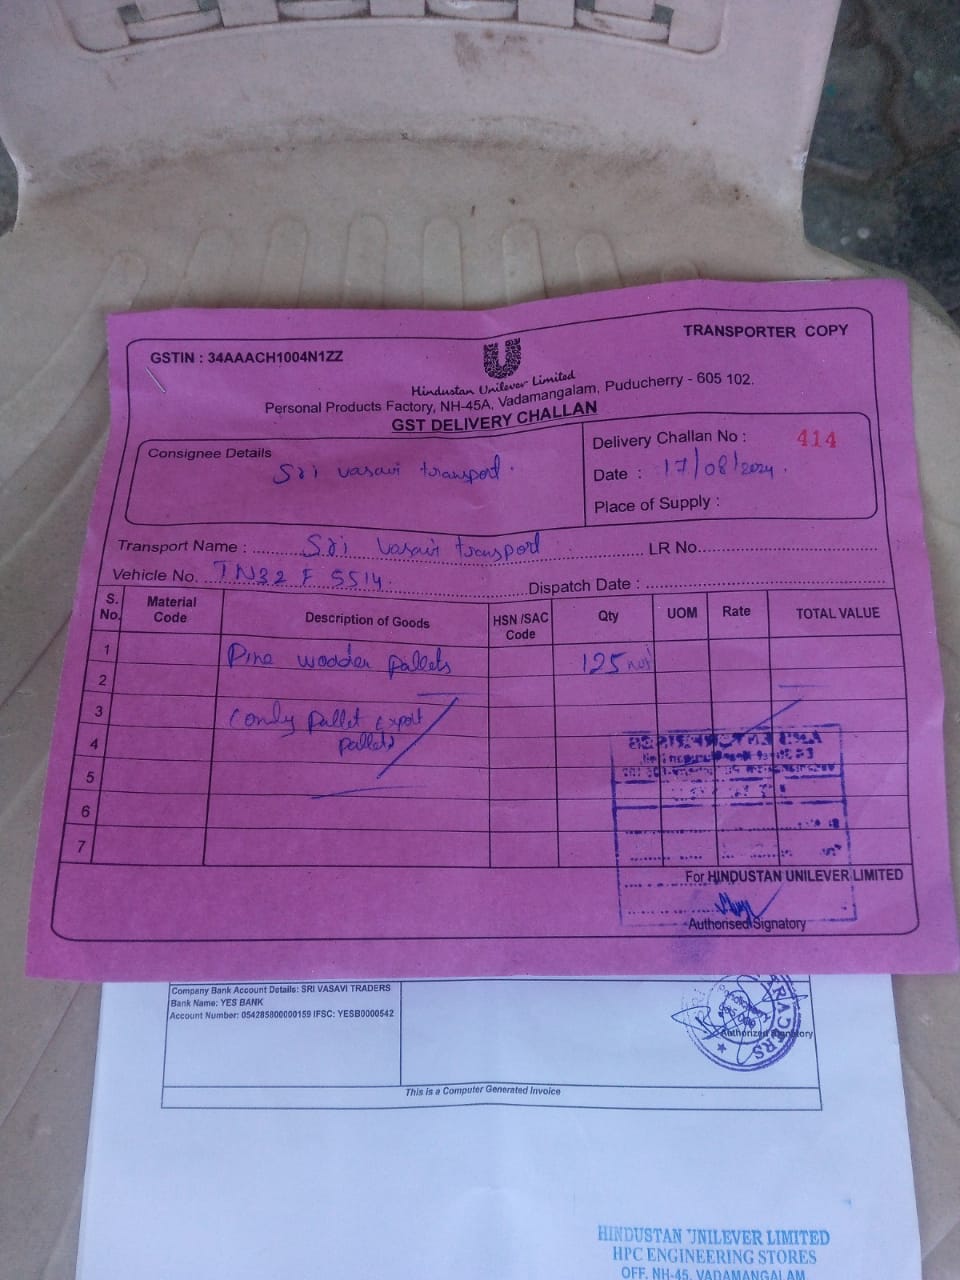 TRANSPORTER COPY
GSTIN : 34AAACH1004N1ZZ
Hindustan Unilever Limited
Personal Products Factory, NH-45A, Vadamangalam, Puducherry - 605 102.
GST DELIVERY CHALLAN
Consignee Details
Sri vasavi transport.
Delivery Challan No : 414
Date : 17/08/2024.
Place of Supply :
Transport Name : Sri Vasavi transport LR No.
Vehicle No. TN32 F 5514. Dispatch Date :
S. No. Material Code Description of Goods HSN /SAC Code Qty UOM Rate TOTAL VALUE
1 Pine wodden pallets 125 nos
2
3 pallet export
4 pallets
5
6
7
For HINDUSTAN UNILEVER LIMITED
Authorised Signatory
Company Bank Account Details: SRI VASAVI TRADERS
Bank Name: YES BANK
Account Number: 054285800000159 IFSC: YESB0000542
TRADERS
Authorized Signatory
This is a Computer Generated Invoice
HINDUSTAN UNILEVER LIMITED
HPC ENGINEERING STORES
OFF. NH-45, VADAMANGALAM